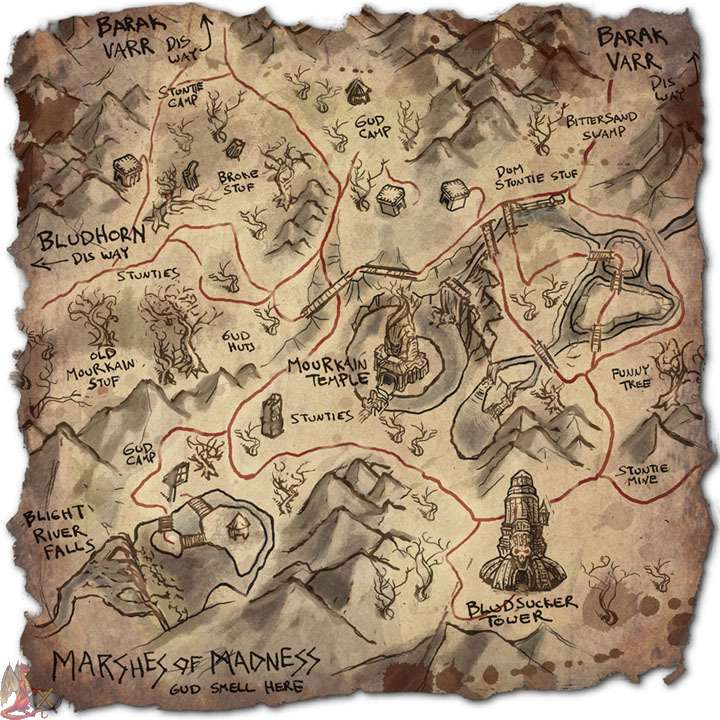 BARAK
VARR DIS
WAY
BARAK
VARR
DIS
WAY
STUNTIE
CAMP
GUD
CAMP
BITTERSAND
SWAMP
BROKE
STUF
DUM
STUNTIE STUF
BLUDHORN
DIS WAY
STUNTIES
GUD
HUTS
OLD
MOURKAIN
STUF
MOURKAIN
TEMPLE
FUNNY
TREE
STUNTIES
GUD
CAMP
STUNTIE
MINE
BLIGHT
RIVER
FALLS
BLUDSUCKER
TOWER
MARSHES OF MADNESS
GUD SMELL HERE